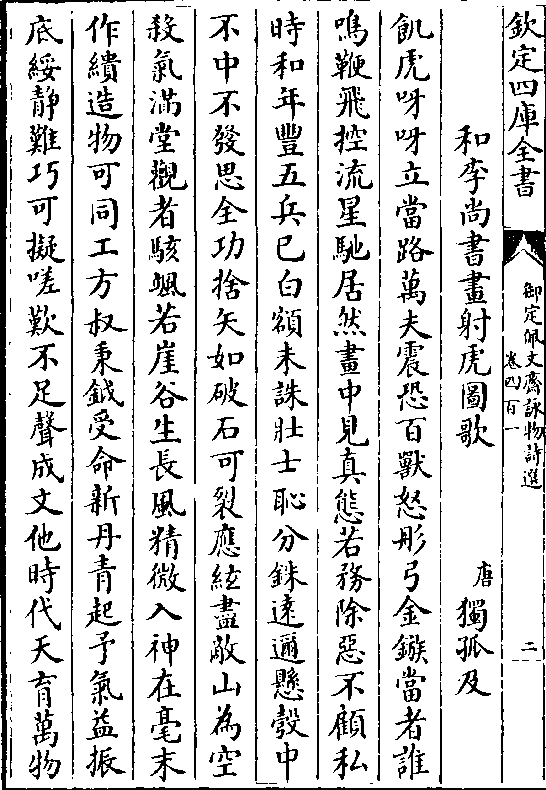 欽定四庫全書
御定佩文齋詠物詩選
卷四百一
二
和李尚書畫射虎圖歌
唐獨孤及
飢虎呀呀立當路萬夫震恐百獸怒彤弓金鏃當者誰
鳴鞭飛控流星馳居然畫中見真態若務除惡不顧私
時和年豐五兵已白額未誅壯士恥分銖遠邇懸彀中
不中不發思全功捨矢如破石可裂應絃盡敵山為空
殺氣滿堂觀者駭颯若崖谷生長風精微入神在毫末
作繢造物可同工方叔秉鉞受命新丹青起予氣益振
底綏靜難巧可擬嗟歎不足聲成文他時代天育萬物